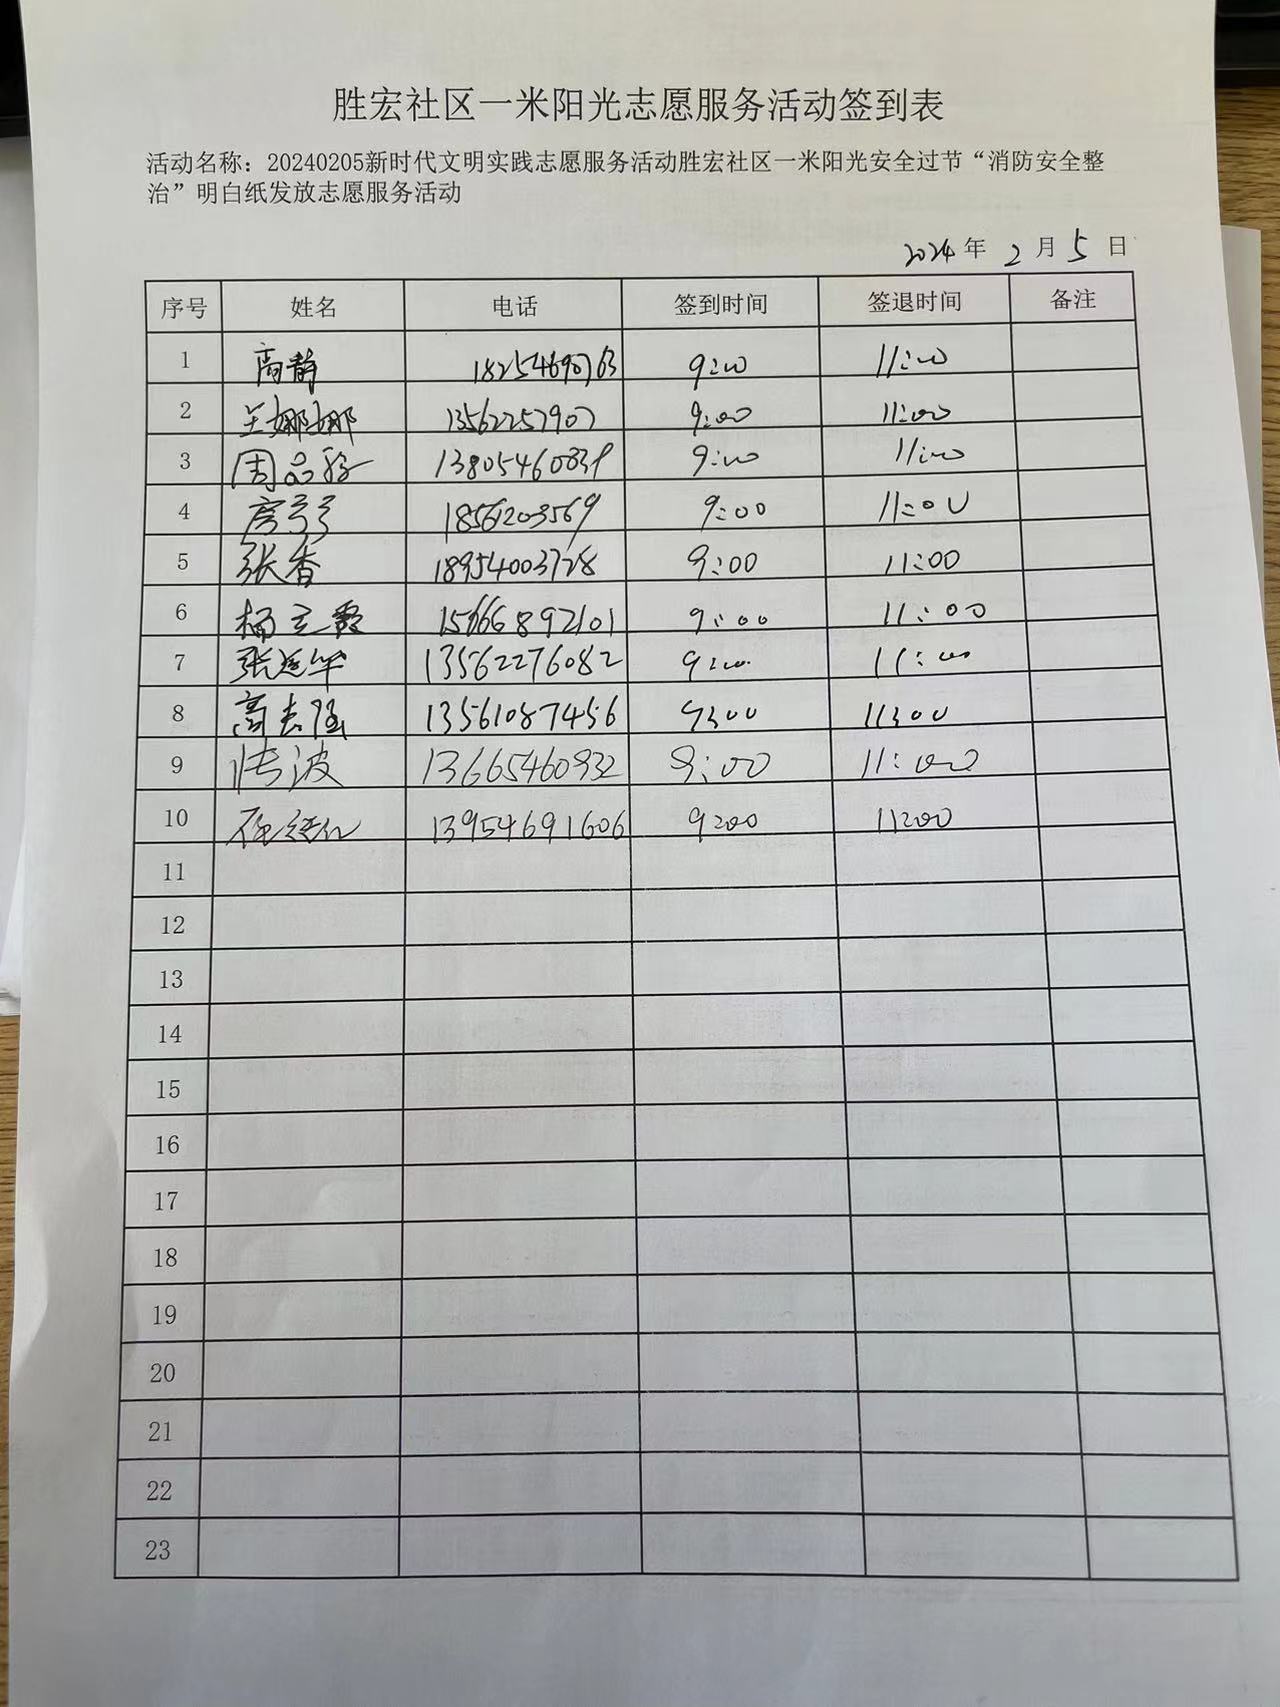 胜宏社区一米阳光志愿服务活动签到表
活动名称：20240205新时代文明实践志愿服务活动胜宏社区一米阳光安全过节“消防安全整
治”明白纸发放志愿服务活动
2024 年 2 月 5 日
序号 姓名 电话 签到时间 签退时间 备注
1 高静 18254690763 9:00 11:00
2 王娜娜 13562257907 9:00 11:00
3 周 13805460839 9:00 11:00
4 房 18561203569 9:00 11:00
5 张香 18954003728 9:00 11:00
6 杨立霞 15666892101 9:00 11:00
7 张莲华 13562276082 9:00 11:00
8 高志强 13561087456 9:00 11:00
9 张波 13665460932 9:00 11:00
10 13954691606 9:00 11:00
11
12
13
14
15
16
17
18
19
20
21
22
23